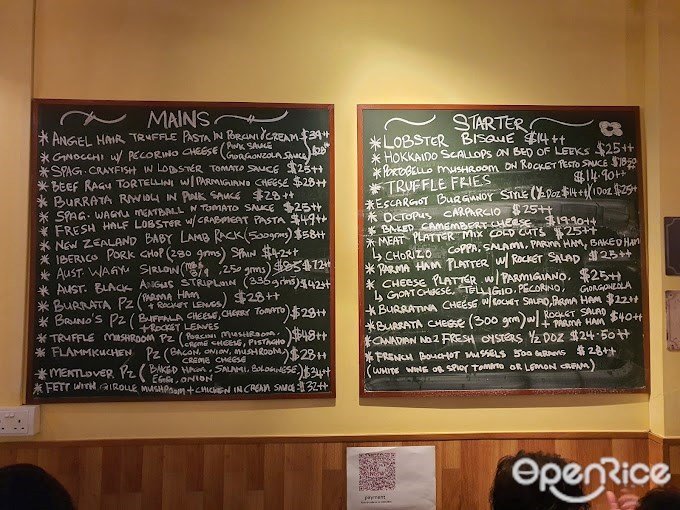 MAINS
* ANGEL HAIR TRUFFLE PASTA IN PORCINI CREAM $39++
* GNOCCHI W/ PECORINO CHEESE (PINK SAUCE
GORGONZOLA SAUCE) $28++
* SPAG. CRAYFISH IN LOBSTER TOMATO SAUCE $25++
* BEEF RAGU TORTELLINI W/ PARMIGIANO CHEESE $28++
* BURRATA RAVIOLI IN PINK SAUCE $28++
* SPAG. WAGYU MEATBALL IN TOMATO SAUCE $25++
* FRESH HALF LOBSTER W/ CRABMEAT PASTA $49++
* NEW ZEALAND BABY LAMB RACK (500grms) $58++
* IBERICO PORK CHOP (280 grms) SPAIN $42++
* AUST. WAGYU SIRLOIN (250 grms) $85 $72++
* AUST. BLACK ANGUS STRIPLOIN (335grms) $42++
* BURRATA PZ (PARMA HAM + ROCKET LEAVES) $28++
* BRUNO'S PZ (BUFFALA CHEESE, CHERRY TOMATO
+ ROCKET LEAVES $28++
* TRUFFLE MUSHROOM PZ (PORCINI MUSHROOM,
CREME CHEESE, PISTACHIO) $48++
* FLAMMKUCHEN PZ (BACON, ONION, MUSHROOM)
CREME CHEESE $28++
* MEATLOVER PZ (BAKED HAM, SALAMI, BOLOGNESE)
EGG, ONION $34++
* FETT WITH GIROLLE MUSHROOM + CHICKEN IN CREAM SAUCE $32++
STARTER
* LOBSTER BISQUE $14++
* HOKKAIDO SCALLOPS ON BED OF LEEKS $25++
* PORTOBELLO MUSHROOM ON ROCKET PESTO SAUCE $18.50
* TRUFFLE FRIES $14.90++
* ESCARGOT BURGUNDY STYLE (½ DOZ $14++) 1 DOZ $25++
* OCTOPUS CARPARCIO $25++
* BAKED CAMEMBERT CHEESE $19.90++
* MEAT PLATTER MIX COLD CUTS $25++
↳ CHORIZO COPPA, SALAMI, PARMA HAM, BAKED HAM
* PARMA HAM PLATTER W/ ROCKET SALAD $25++
* CHEESE PLATTER W/ PARMIGIANO, $25++
↳ GOAT CHEESE, TELLIGIO, PECORINO, GORGONZOLA
* BURRATINA CHEESE W/ ROCKET SALAD, PARMA HAM $22++
* BURRATA CHEESE (300 grm) W/ ROCKET SALAD
+ PARMA HAM $40++
* CANADIAN NO.2 FRESH OYSTERS ½ DOZ $24.50++
* FRENCH BOUCHOT MUSSELS 500 GRAMS $28++
(WHITE WINE OR SPICY TOMATO OR LEMON CREAM)
payment
OPENRICE